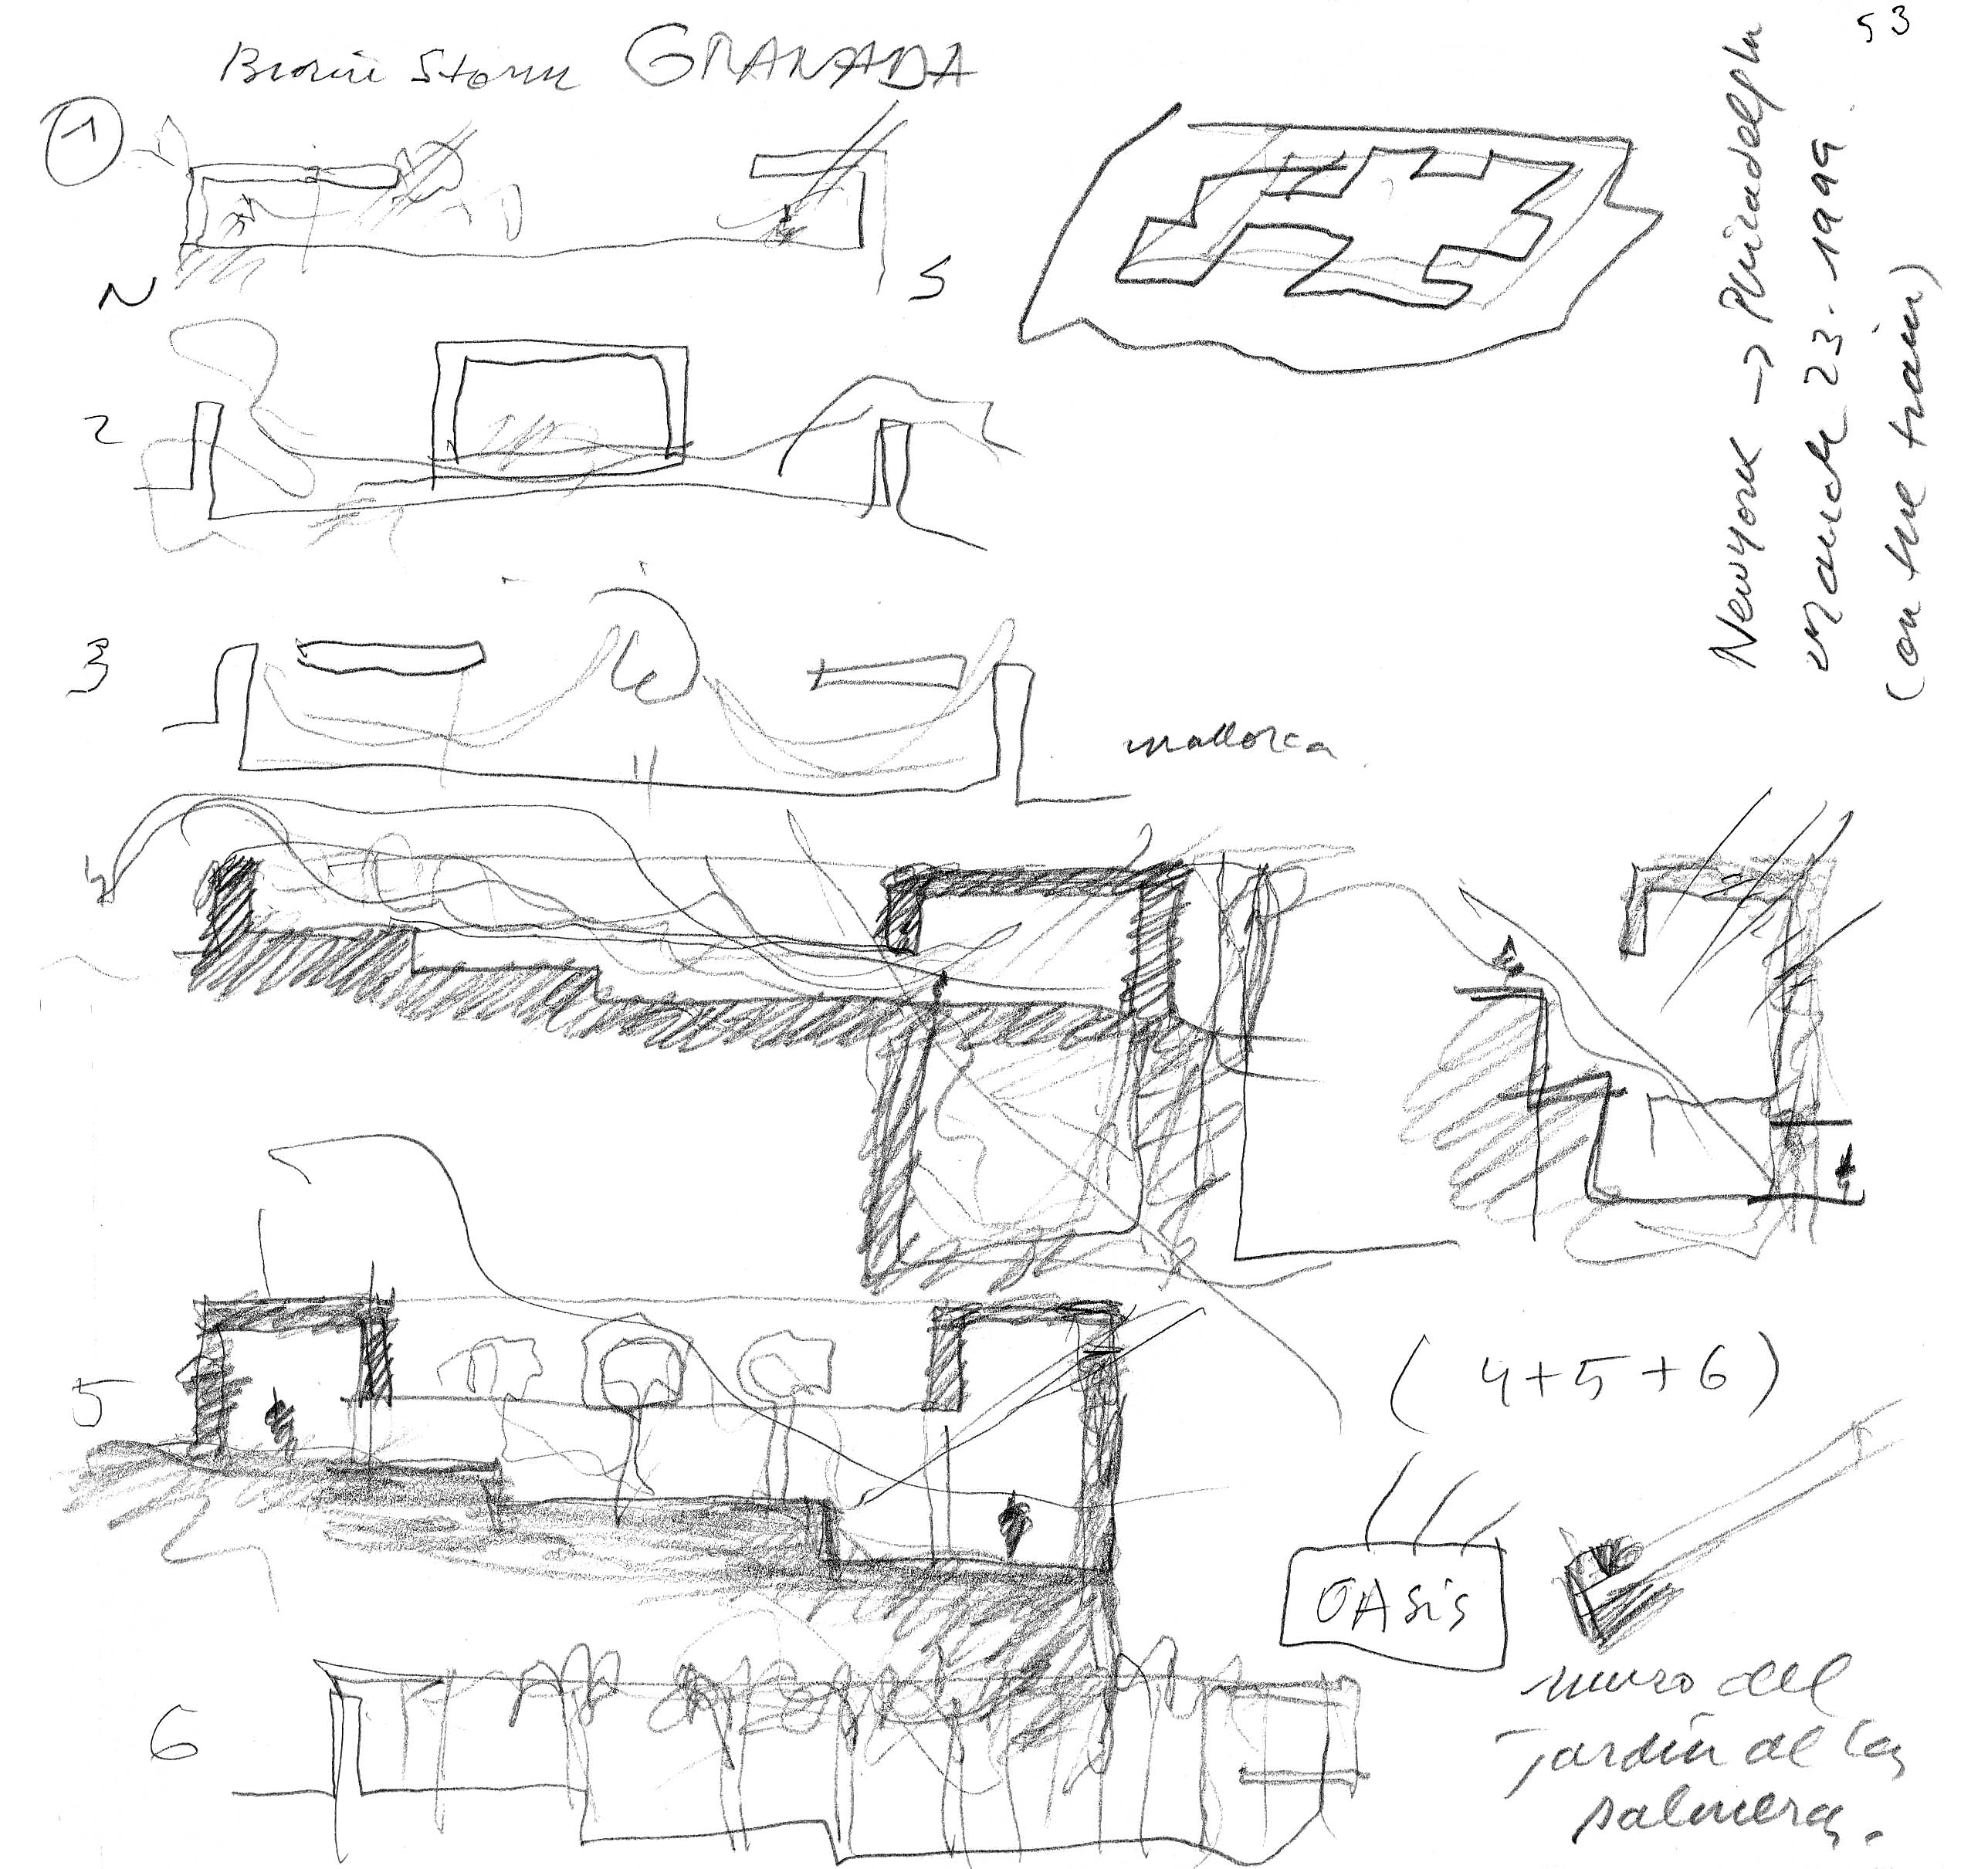 53
Brain Storm GRANADA
Newyork → Philadelphia
March 23. 1999
(on the train)
1
N
S
2
3
mallorca
4
5
(4+5+6)
OAsis
muro del
jardín de las
palmeras.
6